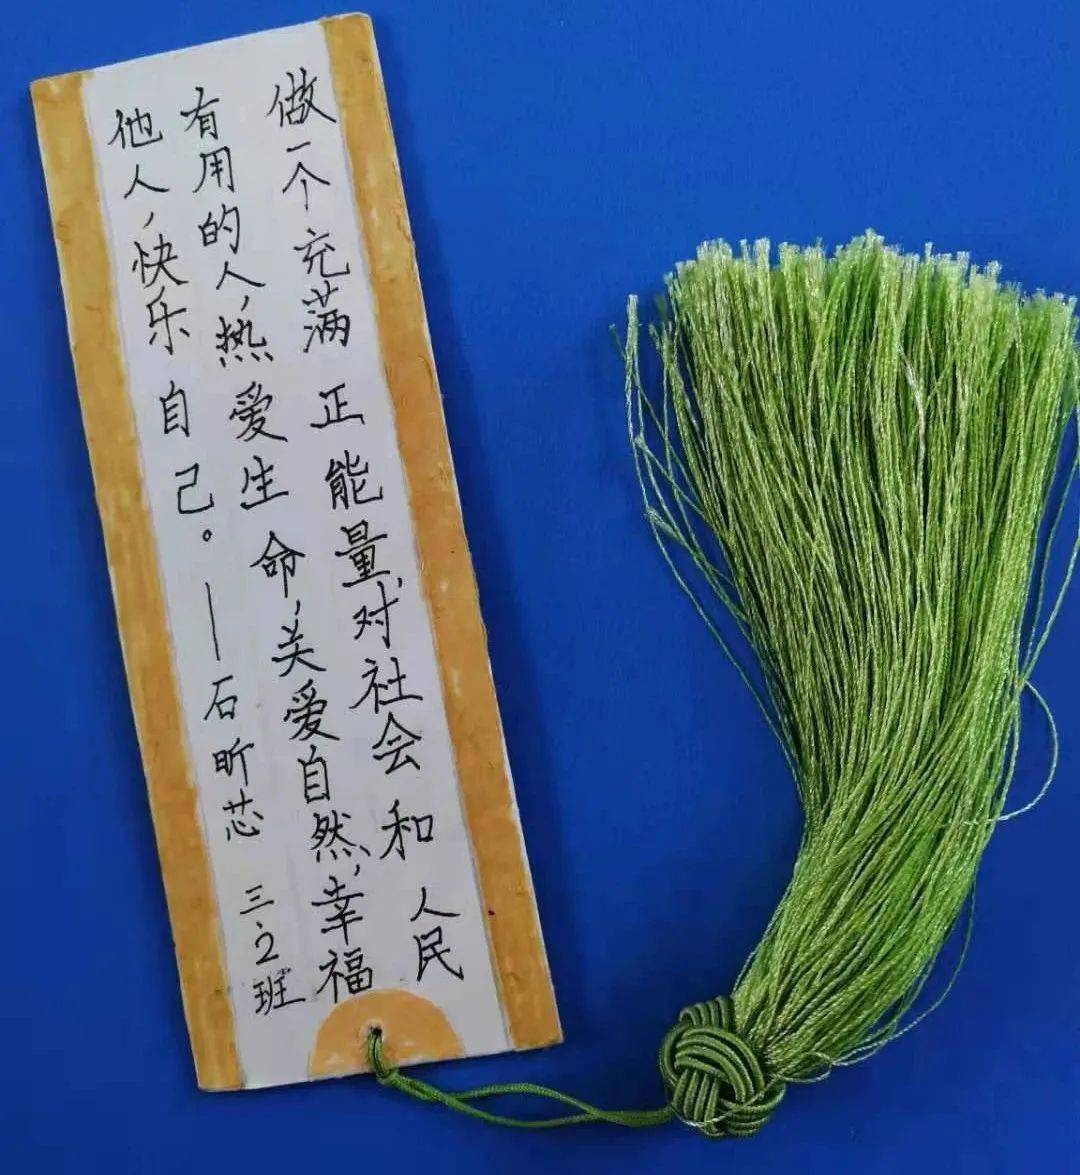 做一个充满正能量,对社会和人民
有用的人,热爱生命,关爱自然,幸福
他人,快乐自己。——石昕芯 三、2班